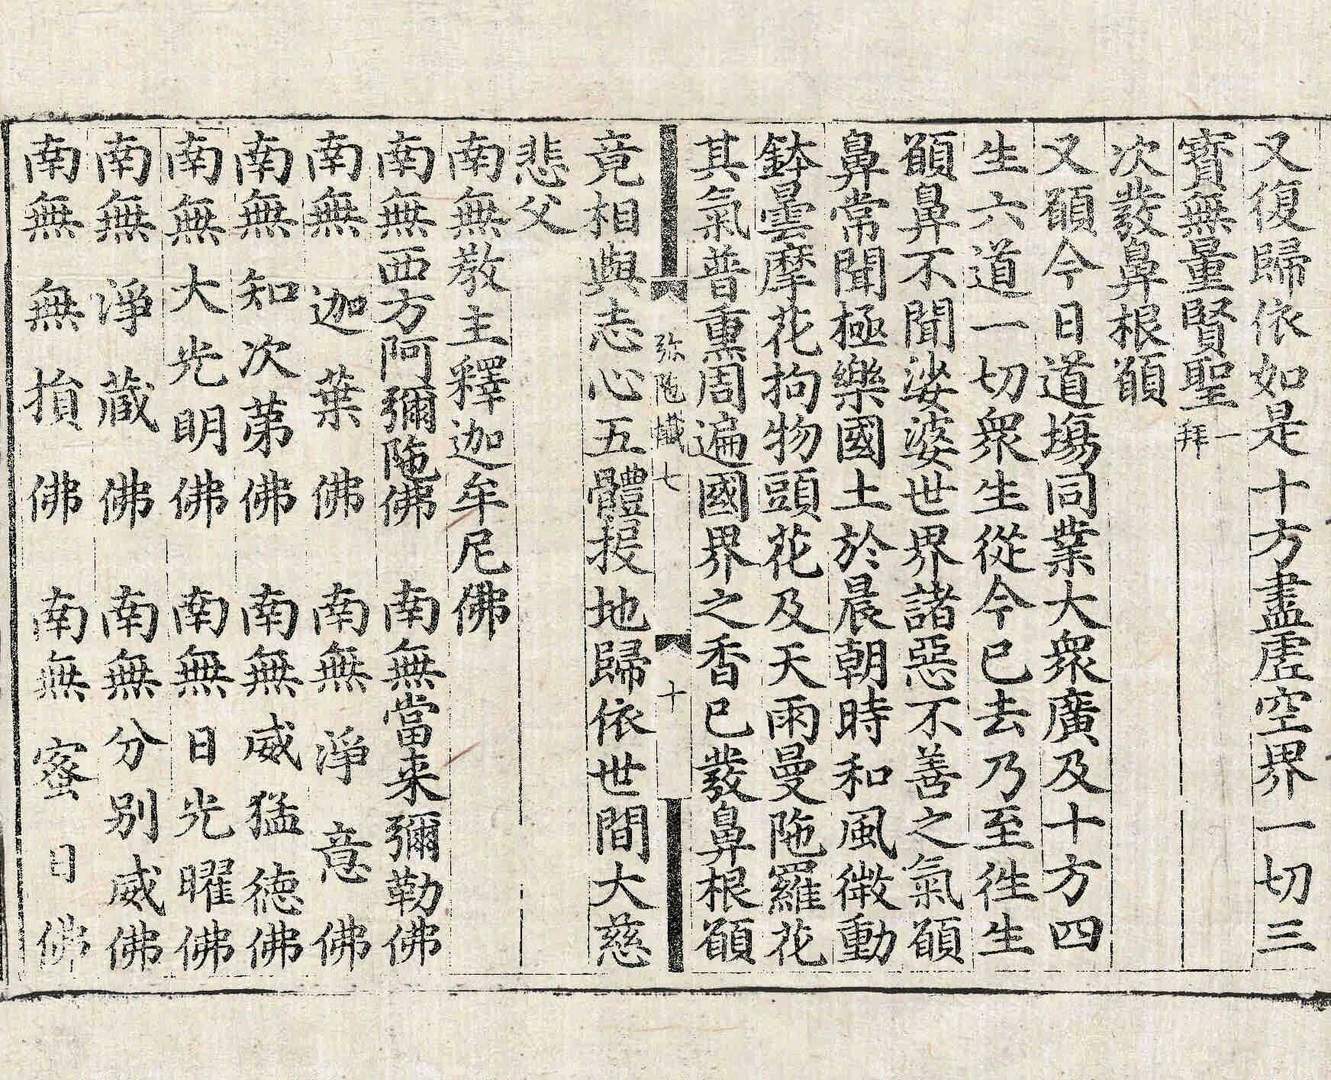 又復歸依如是十方盡虛空界一切三
寶無量賢聖一拜
次發鼻根願
又願今日道場同業大衆廣及十方四
生六道一切衆生從今已去乃至徃生
願鼻不聞娑婆世界諸惡不善之氣願
鼻常聞極樂國土於晨朝時和風微動
鉢曇摩花拘物頭花及天雨曼陁羅花
其氣普熏周遍國界之香已發鼻根願
弥陁懺七 十
竟相與志心五體投地歸依世間大慈
悲父
南無教主釋迦牟尼佛
南無西方阿彌陁佛 南無當来彌勒佛
南無迦葉佛 南無淨意佛
南無知次苐佛 南無威猛德佛
南無大光明佛 南無日光曜佛
南無淨藏佛 南無分别威佛
南無無損佛 南無蜜日佛